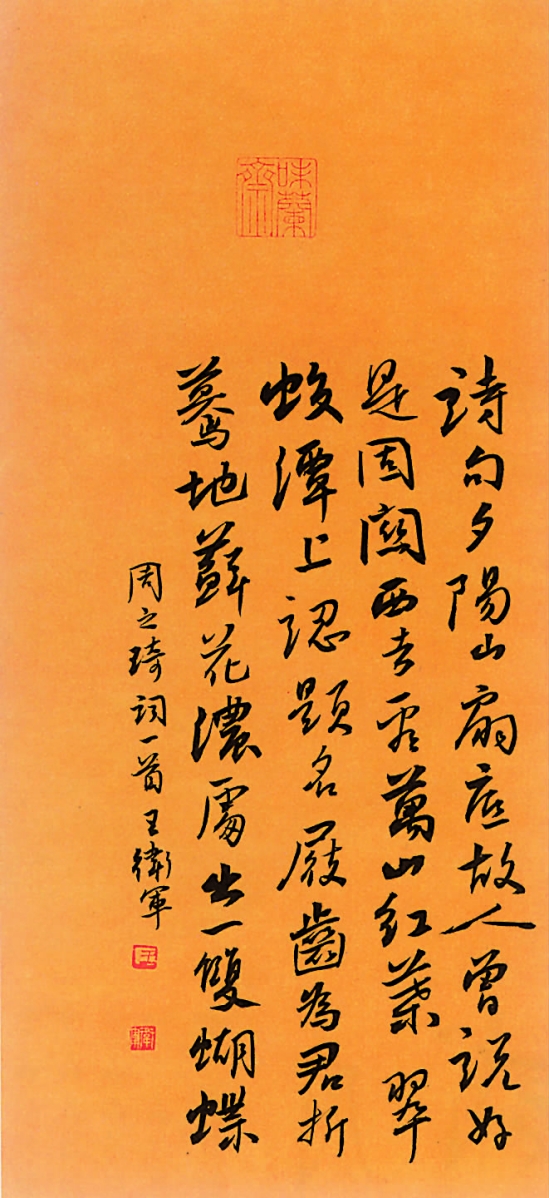 味蘭齋
詩句夕陽山扇底故人曾說好
是固關西去看萬山紅葉翠
蛟潭上認題名屐齒為君折
驀地蘚花濃處出一雙蝴蝶
周之琦詞一首王衛軍
王